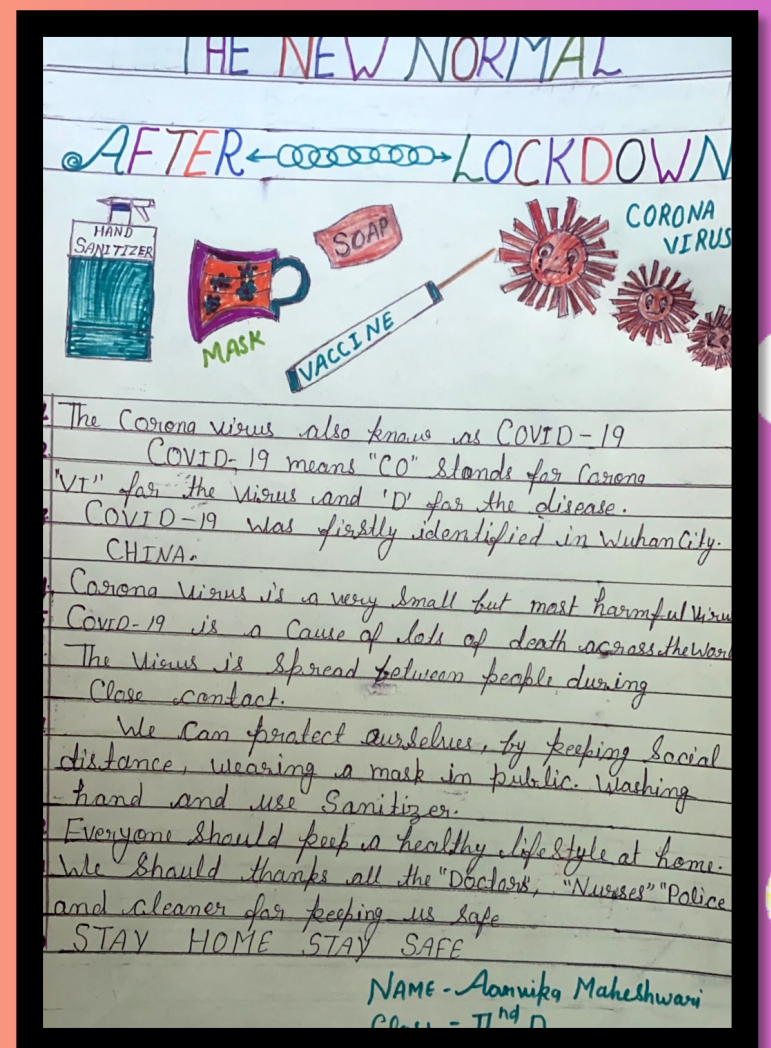 THE NEW NORMAL
AFTER LOCKDOWN
HAND
SANITIZER
MASK
SOAP
VACCINE
CORONA
VIRUS
The Corona virus also know as COVID-19
COVID-19 means "CO" stands for Corona
"VI" for the Virus and 'D' for the disease.
COVID-19 was firstly identified in Wuhan City.
CHINA.
Corona Virus is a very small but most harmful Viru
COVID-19 is a Cause of lots of death across the Worl
The Virus is Spread between people during
Close contact.
We Can protect ourselves, by keeping Social
distance, wearing a mask in public. Washing
hand and use Sanitizer.
Everyone should keep a healthy life style at home.
We Should thanks all the "Doctors", "Nurses" "Police
and cleaner for keeping us safe
STAY HOME STAY SAFE
NAME - Aanvika Maheshwari
Class - IInd D